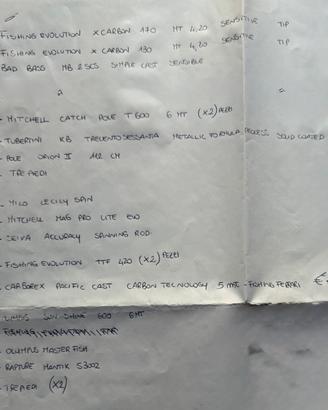 FISHING EVOLUTION X CARBON 170 MT 4,20 SENSITIVE TIP
FISHING EVOLUTION X CARBON 130 MT 4,20 SENSITIVE TIP
BAD BASS MB 2 SCS SIMPLE CAST SENSIBLE
- MITCHELL CATCH POLE T600 6 MT (X2) PEZZI
- TUBERTINI KB TRECENTOSESSANTA METALLIC FORMULA PROCESS SOLID COATED
- POLE ORION II 112 CM
- TREPIEDI
- MILO SPIN
- MITCHELL MAG PRO LITE EVO
- SEIKA ACCURACY SPINNING ROD
- FISHING EVOLUTION TTF 420 (X2) PEZZI
- CARBOREX PACIFIC CAST CARBON TECNOLOGY 5 MT - FISHING FERRARI
OLIMPUS SUN SHINE 600 6MT
- OLIMPUS MASTER FISH
- RAPTURE MANTIK S3002
- TREPIEDI (X2)